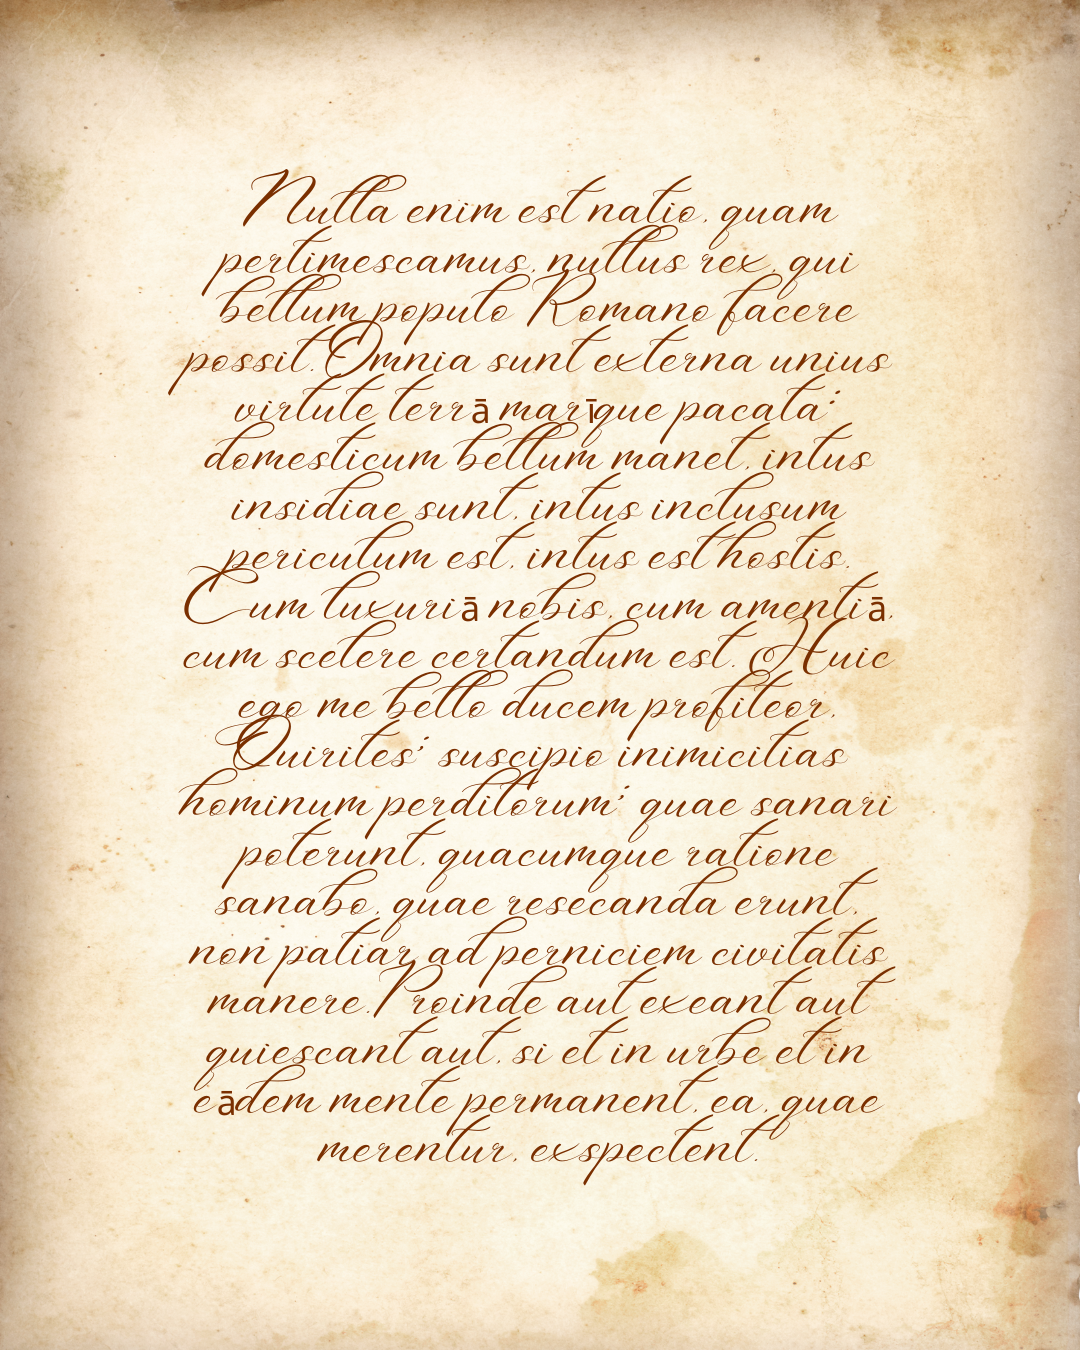 Nulla enim est natio, quam
pertimescamus, nullus rex, qui
bellum populo Romano facere
possit. Omnia sunt externa unius
virtute terrā marīque pacata;
domesticum bellum manet, intus
insidiae sunt, intus inclusum
periculum est, intus est hostis.
Cum luxuriā nobis, cum amentiā,
cum scelere certandum est. Huic
ego me bello ducem profiteor,
Quirites; suscipio inimicitias
hominum perditorum; quae sanari
poterunt, quacumque ratione
sanabo, quae resecanda erunt,
non patiar ad perniciem civitatis
manere. Proinde aut exeant aut
quiescant aut, si et in urbe et in
eādem mente permanent, ea, quae
merentur, exspectent.